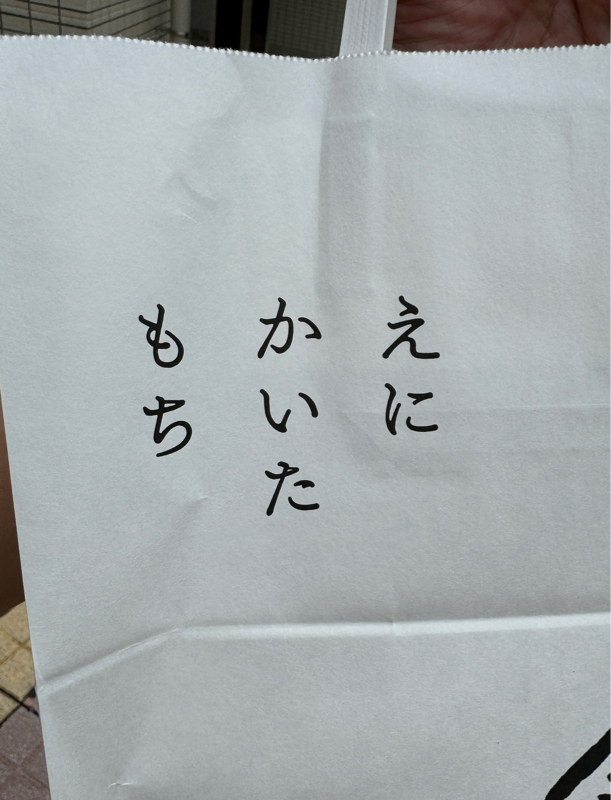 えに
かいた
もち